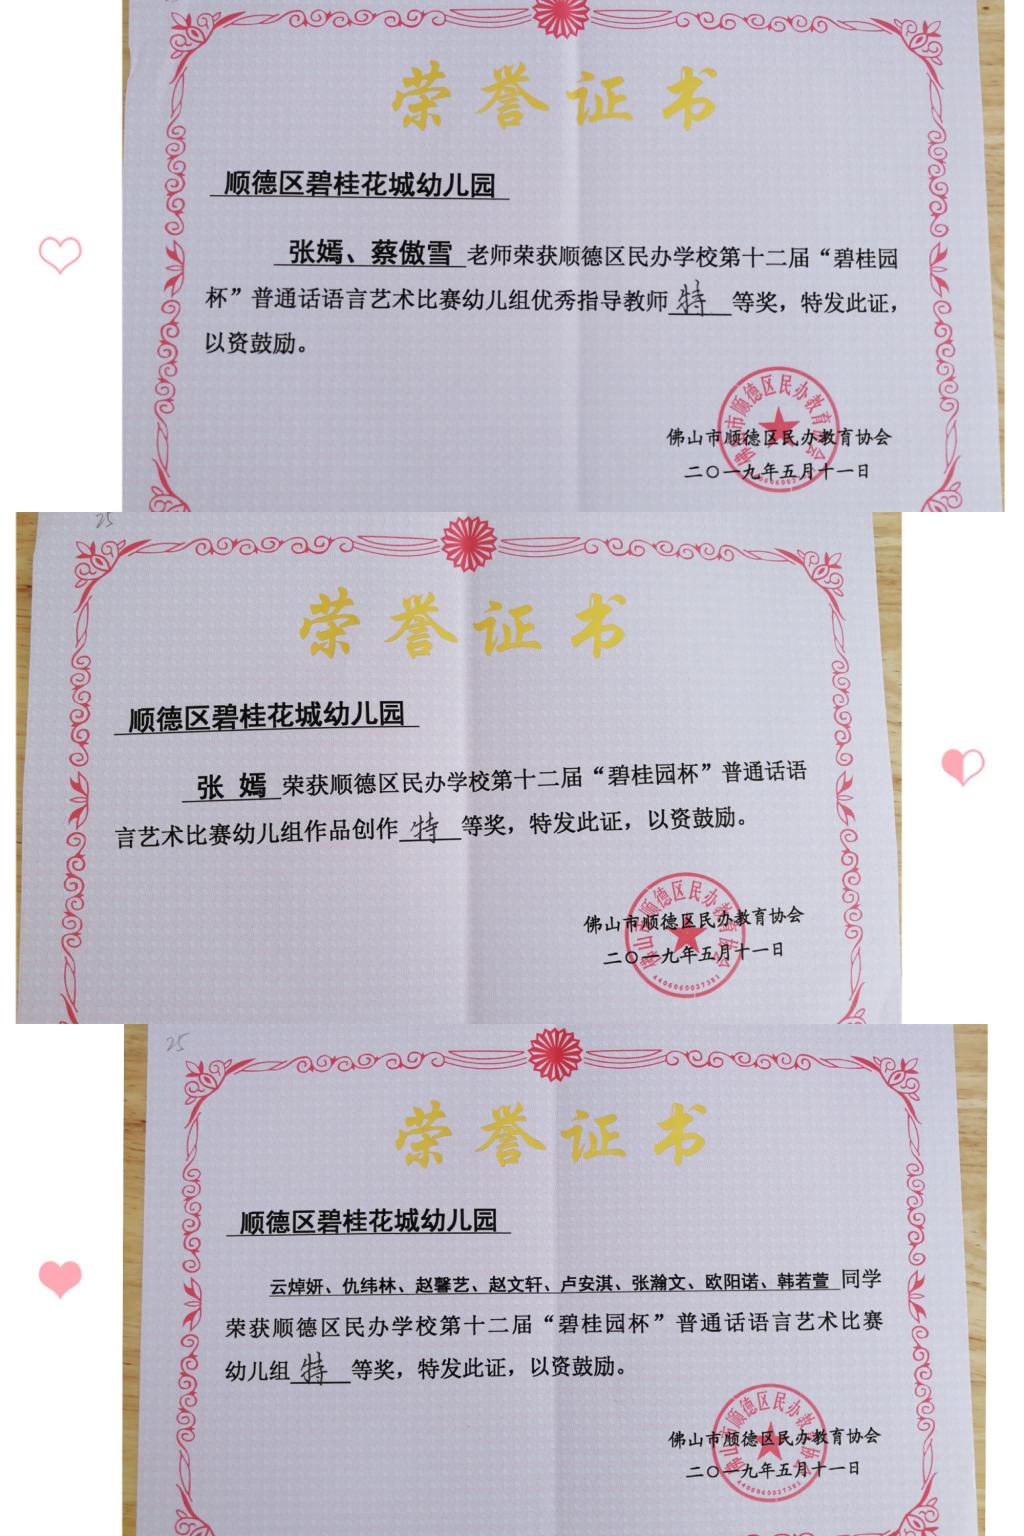 荣誉证书
顺德区碧桂花城幼儿园
张嫣、蔡傲雪老师荣获顺德区民办学校第十二届“碧桂园
杯”普通话语言艺术比赛幼儿组优秀指导教师特等奖，特发此证，
以资鼓励。
佛山市顺德区民办教育协会
二〇一九年五月十一日
佛山市顺德区民办教育协会
25
荣誉证书
顺德区碧桂花城幼儿园
张 嫣 荣获顺德区民办学校第十二届“碧桂园杯”普通话语
言艺术比赛幼儿组作品创作特等奖，特发此证，以资鼓励。
佛山市顺德区民办教育协会
二〇一九年五月十一日
佛山市顺德区民办教育协会
4406060027381
25
荣誉证书
顺德区碧桂花城幼儿园
云焯妍、仇纬林、赵馨艺、赵文轩、卢安淇、张瀚文、欧阳诺、韩若萱同学
荣获顺德区民办学校第十二届“碧桂园杯”普通话语言艺术比赛
幼儿组特等奖，特发此证，以资鼓励。
佛山市顺德区民办教育协会
二〇一九年五月十一日
佛山市顺德区民办教育协会
4406060027381